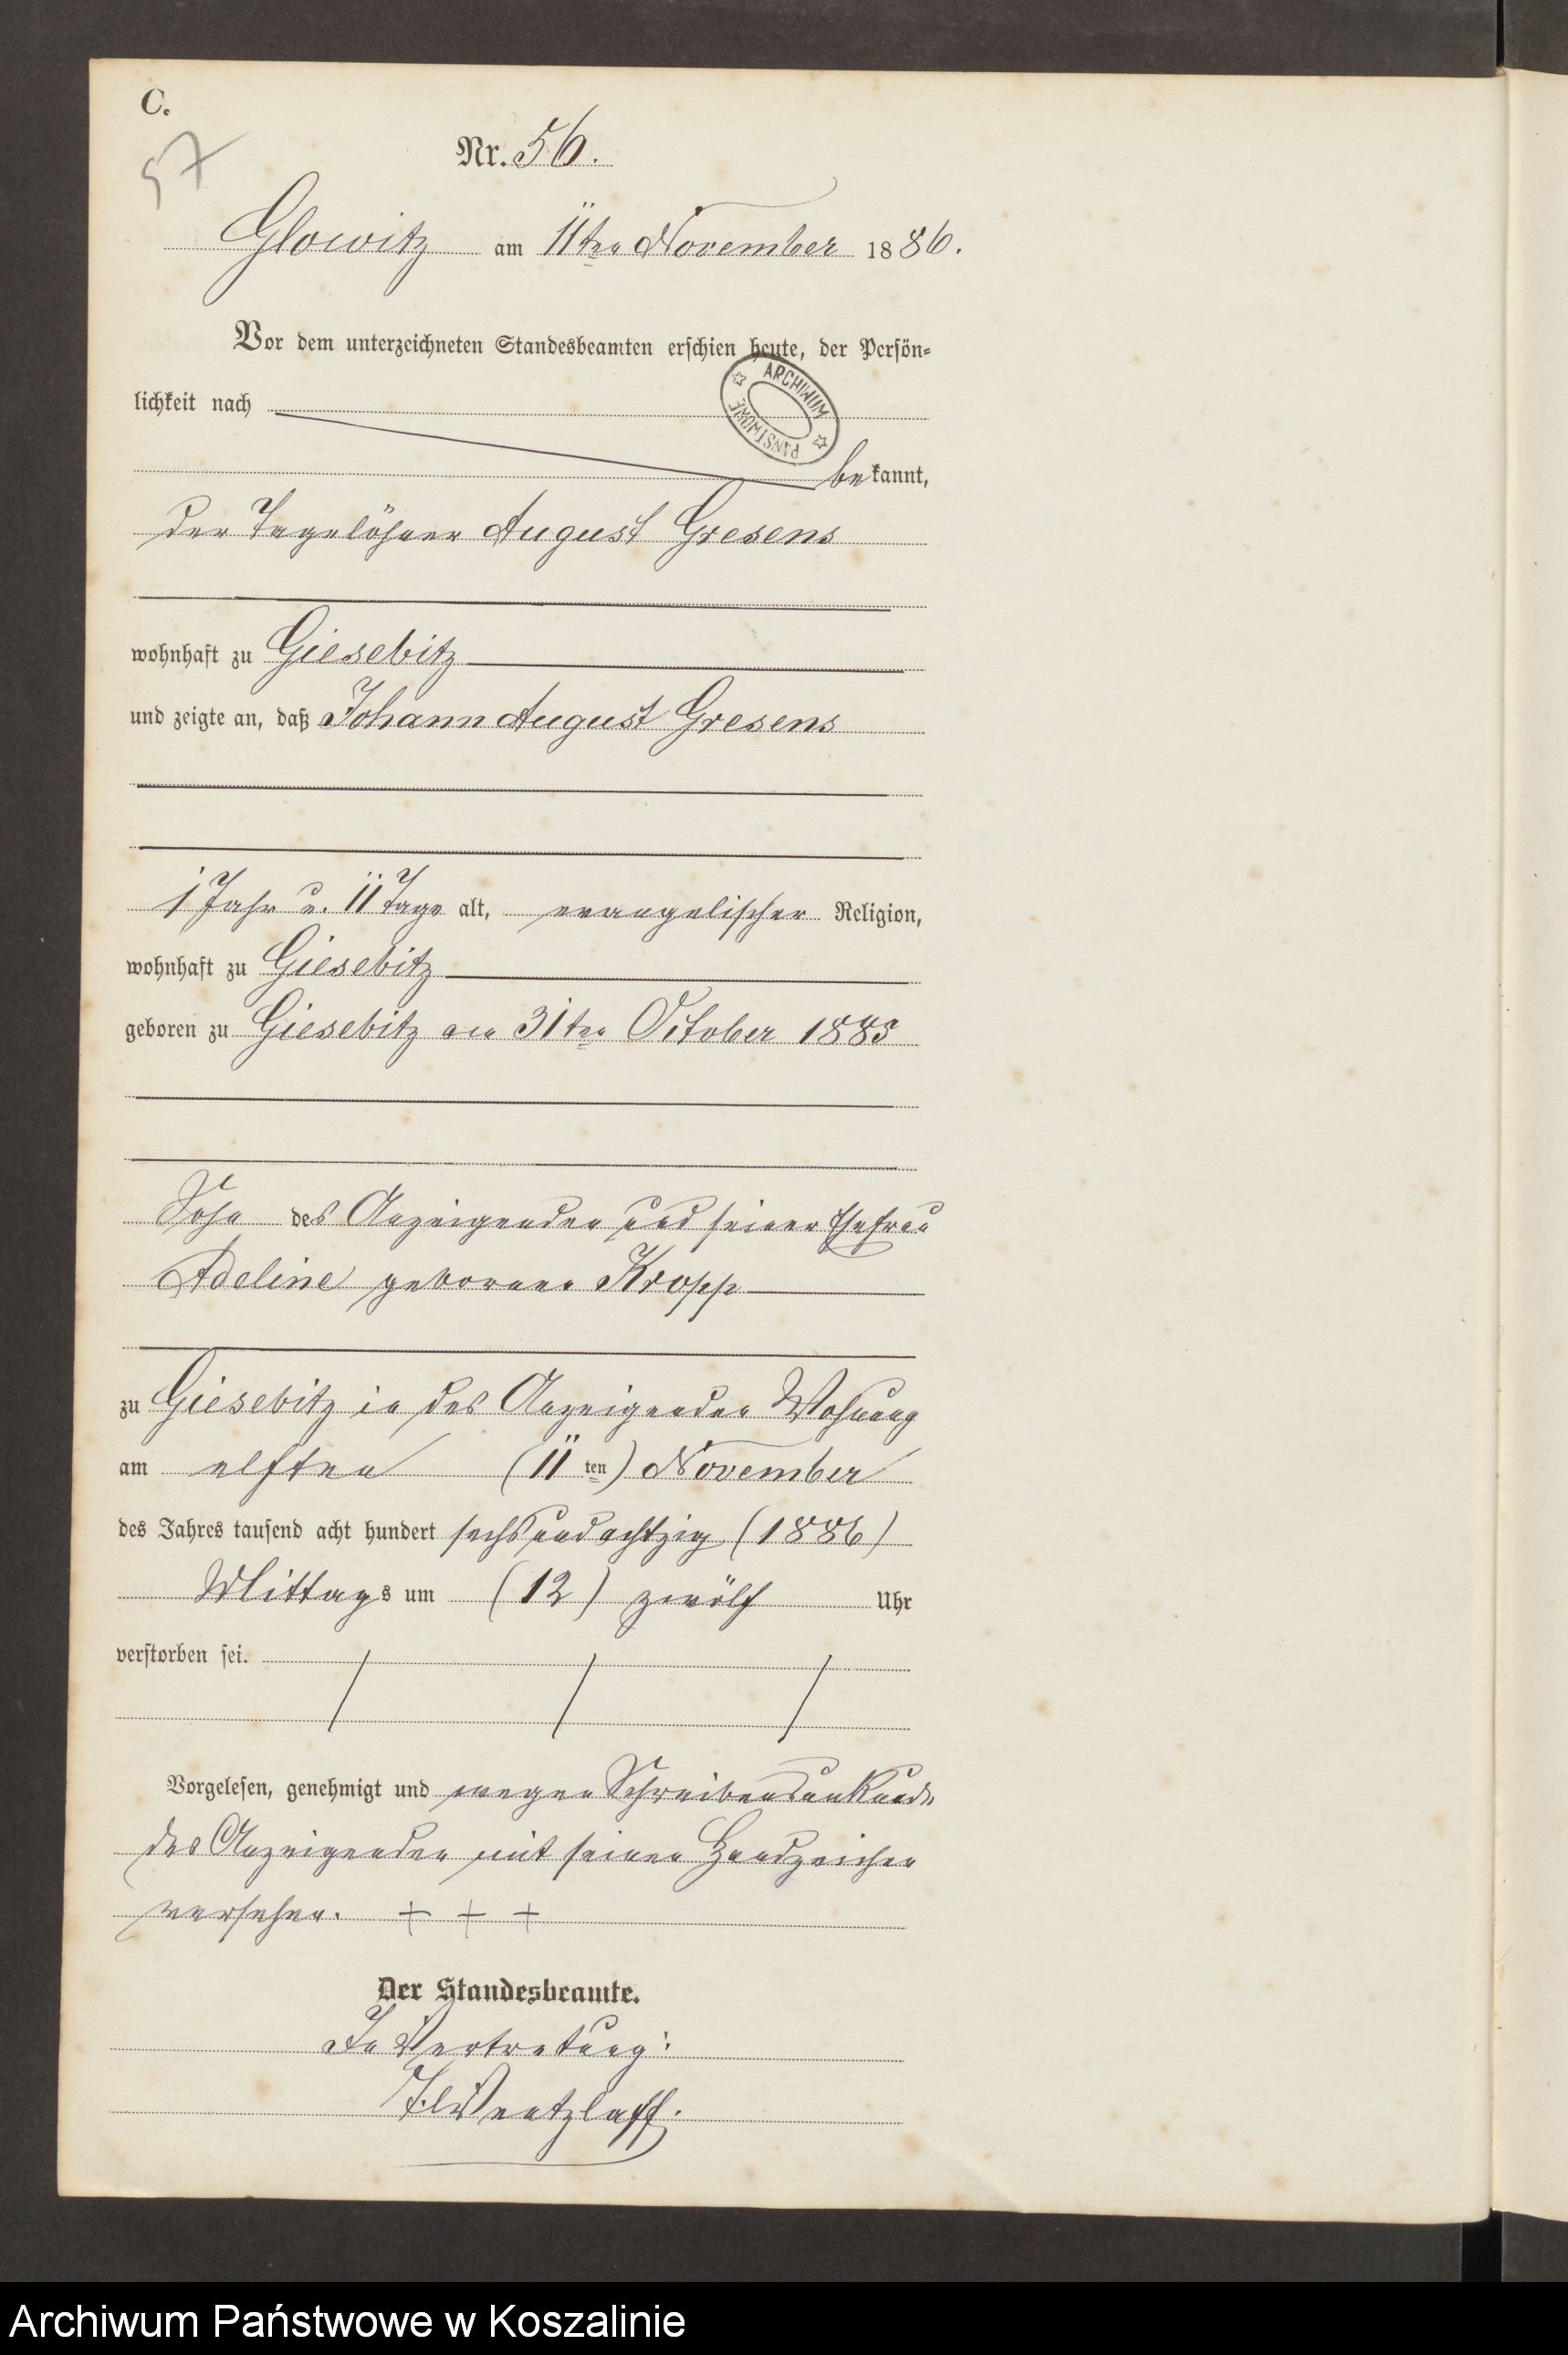 C.
57
Nr. 56.
Glowitz am 11ten November 1886.
Vor dem unterzeichneten Standesbeamten erschien heute, der Persön-
lichkeit nach
ARCHIWUM PAŃSTWOWE
bekannt,
der Tagelöhner August Gresens
wohnhaft zu Giesebitz
und zeigte an, daß Johann August Gresens
1 Jahr u. 11 Tage alt, evangelischer Religion,
wohnhaft zu Giesebitz
geboren zu Giesebitz am 31ten October 1885
Sohn des Anzeigenden und seiner Ehefrau
Adeline geborenen Kropp
zu Giesebitz in des Anzeigenden Wohnung
am elften (11ten) November
des Jahres tausend acht hundert sechsundachtzig (1886)
Mittags um (12) zwölf Uhr
verstorben sei.
Vorgelesen, genehmigt und wegen Schreibensunkunde
des Anzeigenden mit seinen Handzeichen
versehen. + + +
Der Standesbeamte.
In Vertretung:
Wentzlaff.
Archiwum Państwowe w Koszalinie